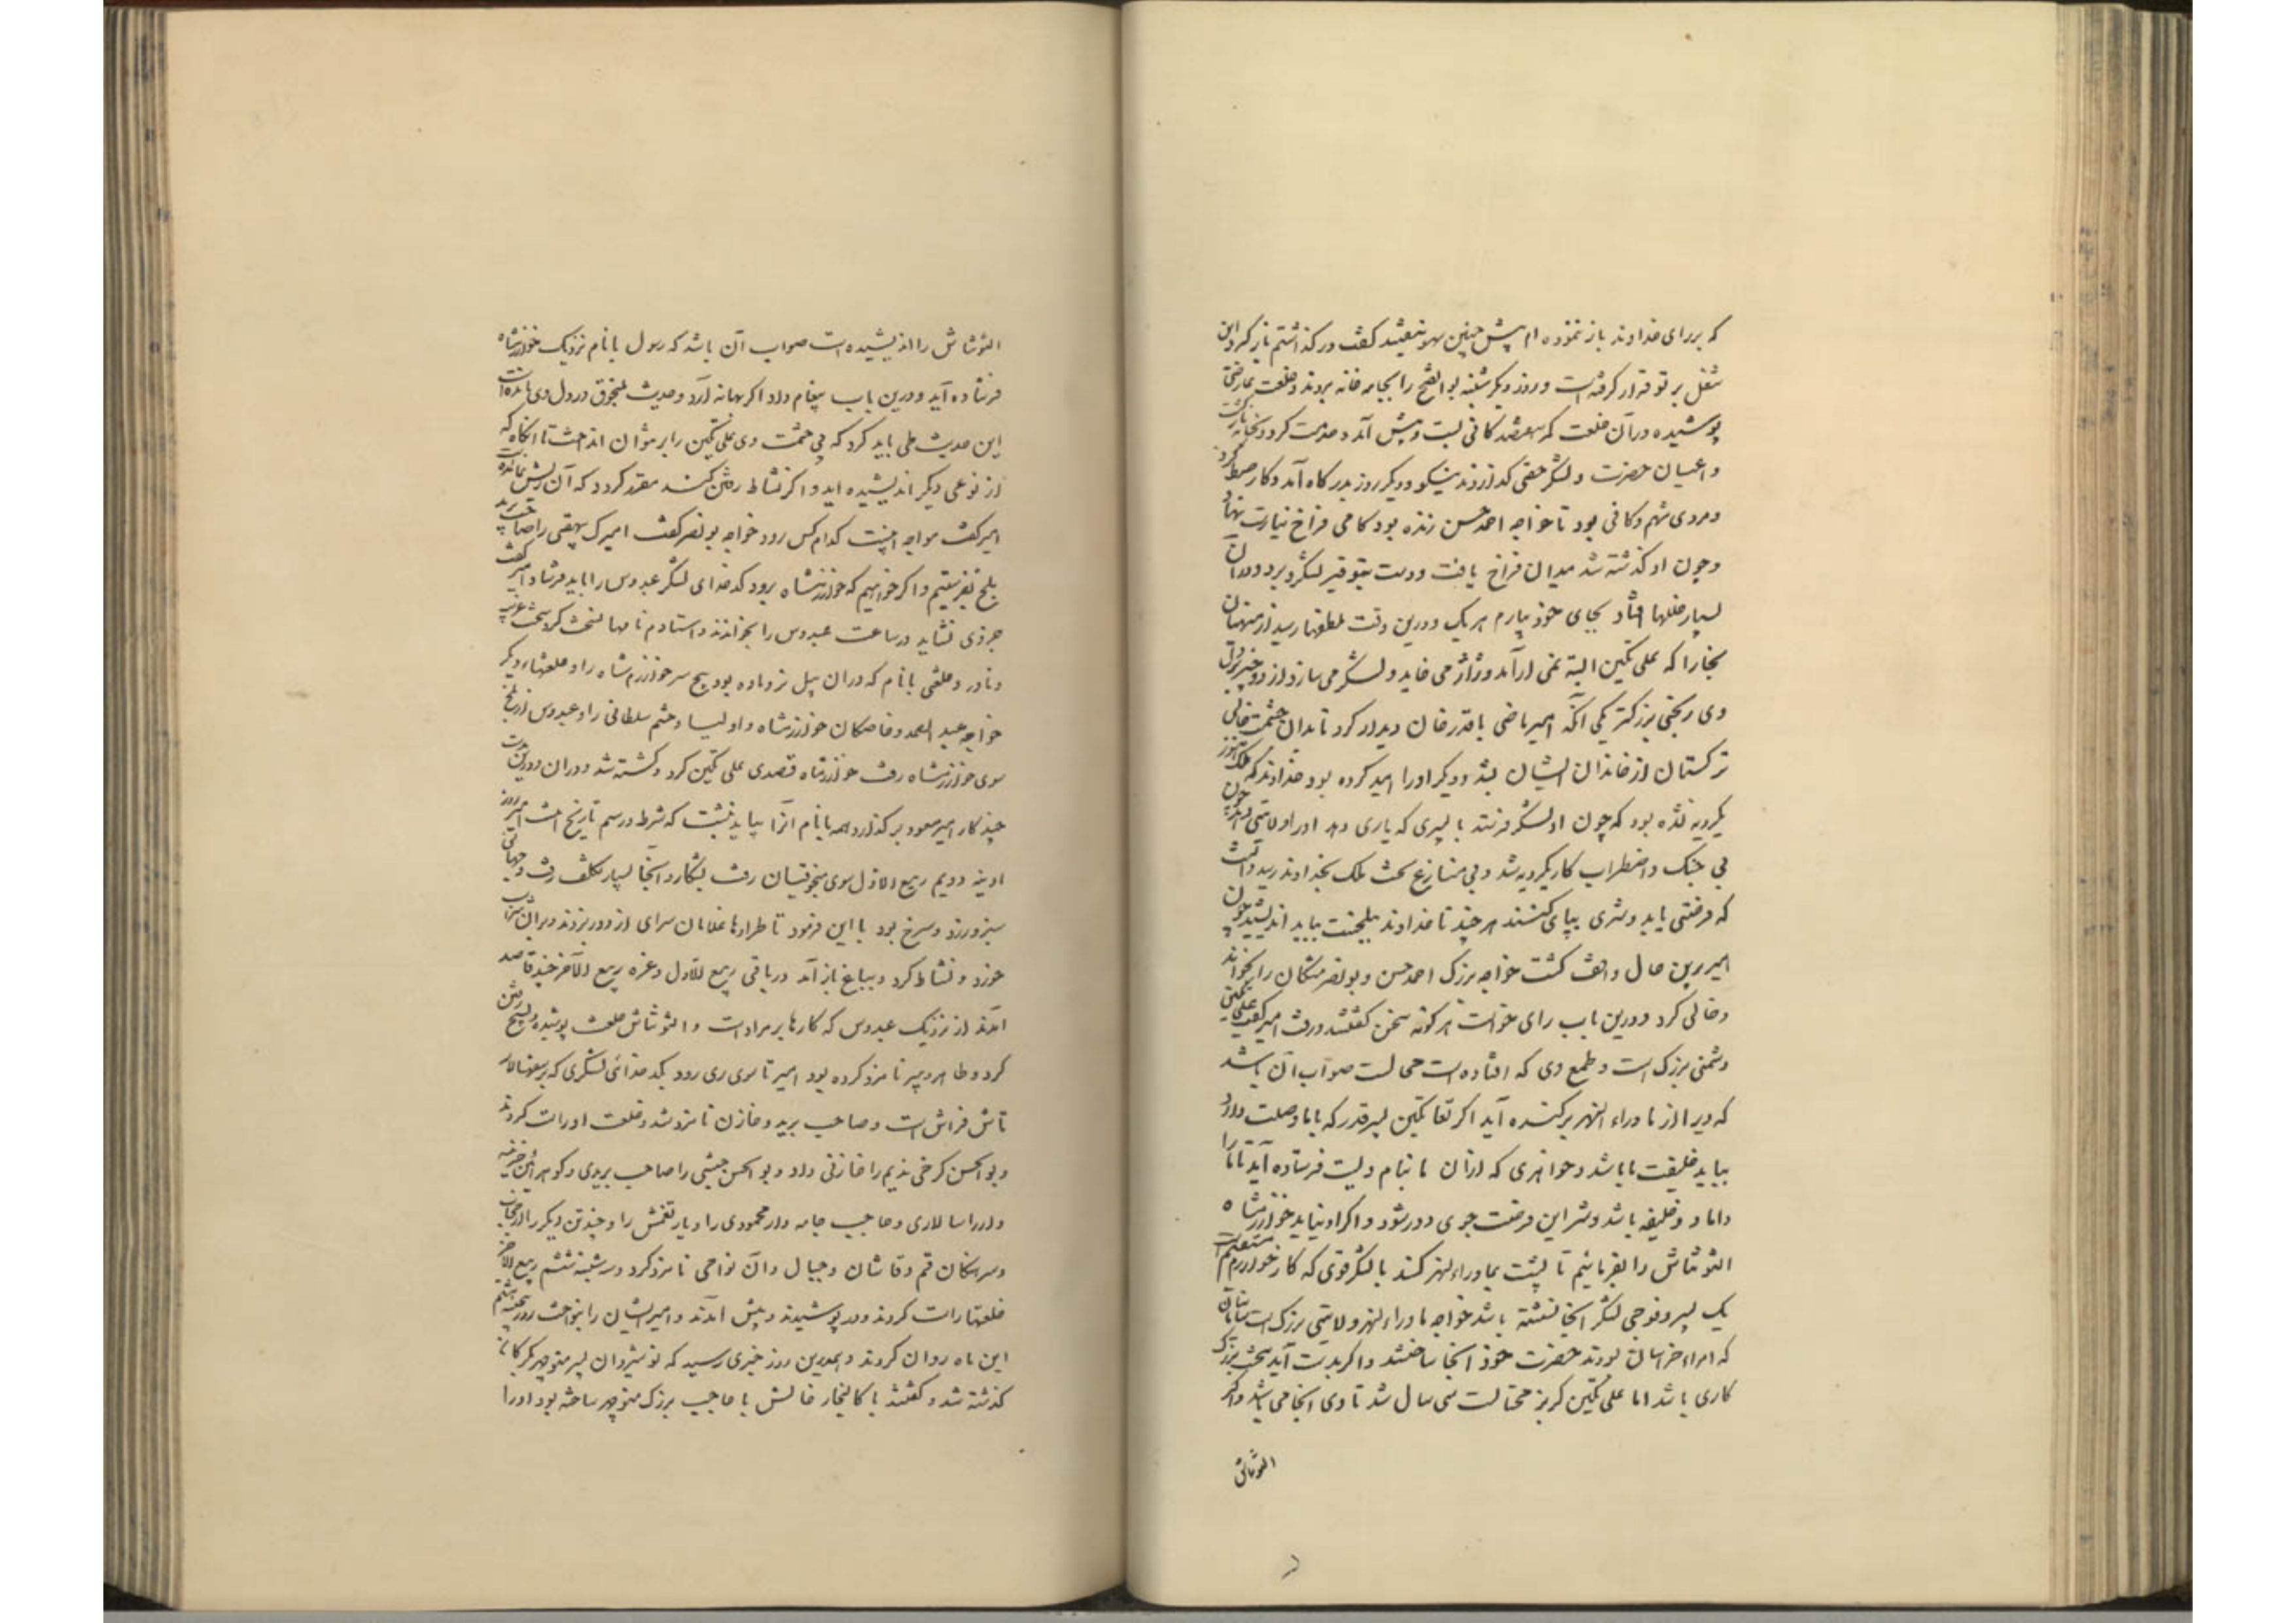 که بررای خداوند باز ننموده ام پیش چنین سهو نیفتد کفت در کذاشتم باز کرد این
شغل بر تو قرار کرفته است و روز دیکر شنبه بو الفتح را بجامه خانه بردند و خلعت عارضی
پوشیده در آن خلعت کمر هفتصد کانی بست و پیش آمد و خدمت کرد و بخانه بازکشت
و اعیان حضرت و لشکر حقی کذاردند نیکو و دیکر روز بدرکاه آمد و کار ضبط کرد
و مردی شهم و کافی بود تا خواجه احمد حسن زنده بود کامی فراخ نیارست نهاد
و چون او کذشته شد میدان فراخ یافت و دست بتوفیر لشکر برد و در آن
بسیار خللها افتاد بجای خود بیارم هر یک و درین وقت ملطفها رسید از منهیان
بخارا که علی تکین البته نمی ارآمد و ژاژ می خاید و لشکر می سازد از دو چیز بر دل
وی رنجی بزرکتر یکی آنکه امیر ماضی با قدر خان دیدار کرد تا بدان حشمت خانی
ترکستان از خاندان ایشان بشد و دیکر اورا امید کرده بود خداوند که ملک هنوز
یکرویه نشده بود که چون او لشکر فرستد با پسری که یاری دهد اورا ولایتی دهد چون
بی جنک و اضطراب کار یکرویه شد و بی منازع تخت ملک بخداوند رسید دانست
که فرصتی یابد و شری بپای کنند هر چند تا خداوند ببلخست بباید اندیشید چون
امیر برین حال واقف کشت خواجه بزرک احمد حسن و بو نصر مشکان را بخواند
و خالی کرد و درین باب رای خواست هر کونه سخن کفتند و رفت امیر کفت علی تکین
دشمنی بزرک است و طمع وی که افتاده است محالست صواب آن باشد
که ویرا از ماوراء النهر برکنده آید اکر بغا تکین پسر قدر که باما وصلت دارد
بیاید خلیفت ما باشد و خواهری که ازان ما بنام ویست فرستاده آید تا ما را
داماد و خلیفه باشد و شر این فرصت جوی دور شود و اکر او نیاید خوارزمشاه
التونتاش را بفرمائیم تا پشت بماوراء النهر کند با لشکر قوی که کار خوارزم مستقیم است
یک پسر و فوجی لشکر آنجا نشسته باشد خواجه ماوراء النهر ولایتی بزرک است سامانیان
که امراء خراسان بودند حضرت خود آنجا ساختند و اکر بدست آید سخت بزرک
کاری باشد اما علی تکین کربز محتالست سی سال شد تا وی آنجا می باشد و اکر
التونتاش
التونتاش را اندیشیده است صواب آن باشد که رسول با نام نزدیک خوارزمشاه
فرستاده آید و درین باب پیغام داد اکر بهانه آرد و حدیث منجوق در دل وی مانده است
این حدیث طی باید کرد که بی حشمت وی علی تکین را بر نتوان انداخت تا انکاه که
از نوعی دیکر اندیشیده آید و اکر نشاط رفتن کند مقرر کردد که آن ریش نمانده است
امیر کفت موجه اینست کدام کس رود خواجه بو نصر کفت امیرک بیهقی را صاحب برید
بلخ بفرستیم و اکر خواهیم که خوارزمشاه برود کدخدای لشکر عبدوس را باید فرستاد امیر کفت
جز وی نشاید در ساعت عبدوس را بخواندند و استادم نامها نسخت کرد سخت غریب
و نادر و خلعتی با نام که در آن پیل نر و ماده بود پنج سر خوارزمشاه را و خلعتهاء دیکر
خواجه عبد الصمد و خاصکان خوارزمشاه و اولیا و حشم سلطانی را و عبدوس از بلخ
سوی خوارزمشاه رفت خوارزمشاه قصدی علی تکین کرد و کشته شد و در آن و درین مدت
چند کار امیر مسعود بر کذارد همه با نام آنرا بباید نبشت که شرط و رسم تاریخ است امیر روز
ادینه دویم ربیع الاول سوی منجوقیان رفت بشکار و آنجا بسیار تکلف رفت و جهانی
سبز و زرد و سرخ بود با این فرمود تا طرادها غلامان سرای از دور بزدند و بران شراب
خورد و نشاط کرد و بباغ باز آمد در باقی ربیع الاول و غره ربیع الآخر چند قاصد
آمدند از نزدیک عبدوس که کارها بر مراد است و التونتاش خلعت پوشیده و بسیج رفتن
کرد و طاهر دبیر نامزد کرده بود امیر تا سوی ری رود بکدخدائی لشکری که بر سپهسالار
تاش فراش است و صاحب برید و خازن نامزد شد و خلعت او راست کردند
و بو الحسن کرخی ندیم را خازنی داد و بو الحسن حبشی را صاحب بریدی و کوهر آئین خزینه
دار را سالاری و حاجب جامه دار محمودی را و یارتغمش را و چند تن دیکر را از حجاب
و سرهنکان قم و قاشان و جبال و آن نواحی نامزد کرد و سه شنبه ششم ربیع الآخر
خلعتها راست کردند و در پوشیدند و پیش آمدند و امیر ایشان را بنواخت روز پنجشنبه هشتم
این ماه روان کردند و همدرین روز خبری رسید که نوشیروان پسر منوچهر بکرکان
کذشته شد و کفتند با کالیجار خالش با حاجب بزرک منوچهر ساخته بود اورا